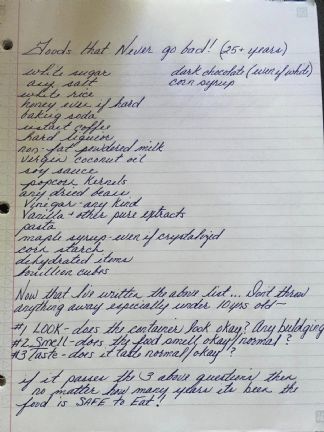 Foods that Never go bad!! (25+ years)
white sugar
any salt
white rice
honey even if hard
baking soda
instant coffee
hard liqueor
non-fat powdered milk
vergin coconut oil
soy sauce
popcorn Kernels
any dried beans
Vinegar-any kind
Vanilla + other pure extracts
pasta
maple syrup-even if crystalized
corn starch
dehydrated items
bouillion cubes
dark chocolate (even if white)
corn syrup
Now that I've written the above list... Dont throw
anything away especially under 10 yrs old-
#1 LOOK-does the container look okay? Any buldging
#2 Smell-does the food smell okay/normal?
#3 Taste-does it taste normal/okay?
if it passes the 3 above questions then
no matter how many years its been the
food is SAFE to Eat!